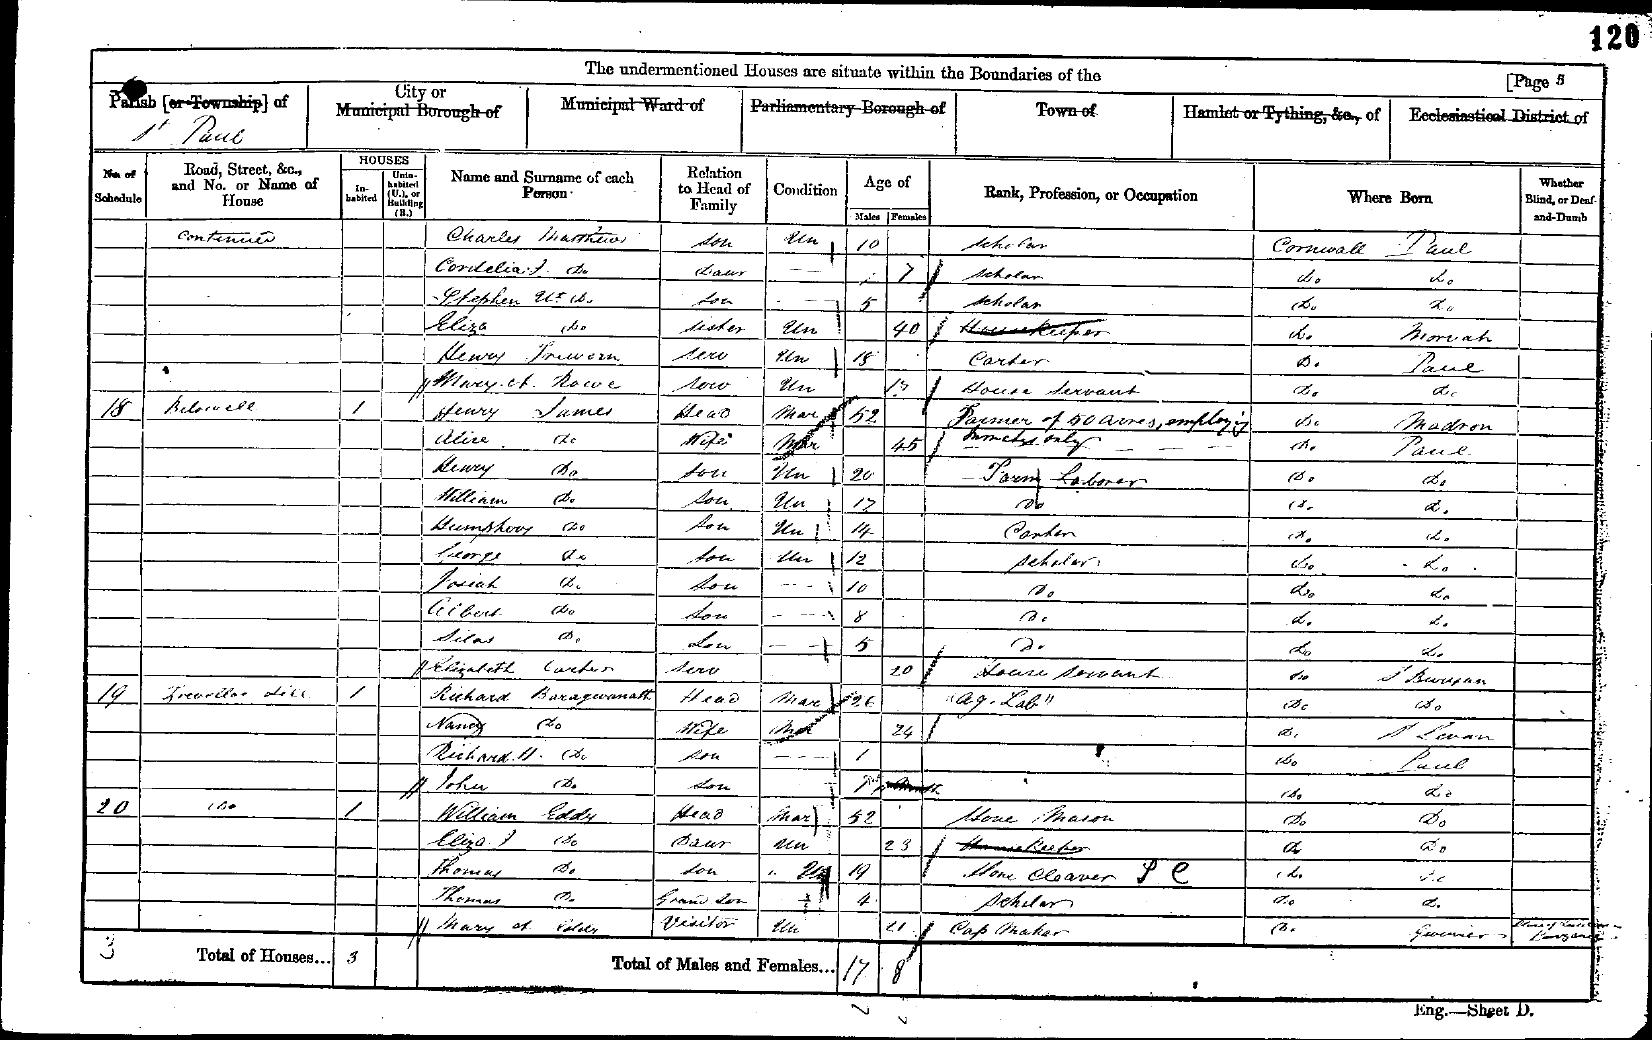 120
The undermentioned Houses are situate within the Boundaries of the
[Page 5
Parish [or Township] of
City or Municipal Borough of
Municipal Ward of
Parliamentary Borough of
Town of
Hamlet or Tything, &c., of
Ecclesiastical District of
St Paul
No. of Schedule
Road, Street, &c., and No. or Name of House
HOUSES
Inhabited
Uninhabited (U.), or Building (B.)
Name and Surname of each Person
Relation to Head of Family
Condition
Age of
Males
Females
Rank, Profession, or Occupation
Where Born
Whether Blind, or Deaf-and-Dumb
continued Charles Matthews son Un 10 scholar Cornwall Paul
Cordelia J. Do Daur 7 scholar Do Do
Stephen Do son 5 scholar Do Do
Eliza Do sister Un 40 Housekeeper Do Morvah
Henry Trewern serv Un 18 Carter Do Paul
Mary A. Rowe serv Un 17 House Servant Do Do
18 1 Henry James Head Mar 52 Farmer of 50 acres, employing Do Madron
Alice Do Wife Mar 45 only Do Paul
Henry Do son Un 20 Farm Laborer Do Do
William Do son Un 17 Do Do Do
Humphrey Do son Un 14 Carter Do Do
George Do son Un 12 scholar Do Do
Josiah Do son 10 Do Do Do
Albert Do son 8 Do Do Do
Silas Do son 5 Do Do Do
Elizabeth serv 20 House Servant Do
19 1 Richard Baragwanath Head Mar 26 "Ag. Lab" Do Do
Nancy Do Wife Mar 24 Do St Levan
Richard H. Do son 1 Do Paul
John Do son Do Do
20 Do 1 William Eddy Head Mar 52 Stone Mason Do Do
Eliza J Do Daur Un 23 Housekeeper Do Do
Thomas Do son Un 19 Stone Cleaver Do Do
Thomas Do Grand son 4 Scholar Do Do
Mary A. Visitor Un 21 Cap Maker Do Gwinear
3 Total of Houses... 3
Total of Males and Females... 17 8
Eng.—Sheet D.